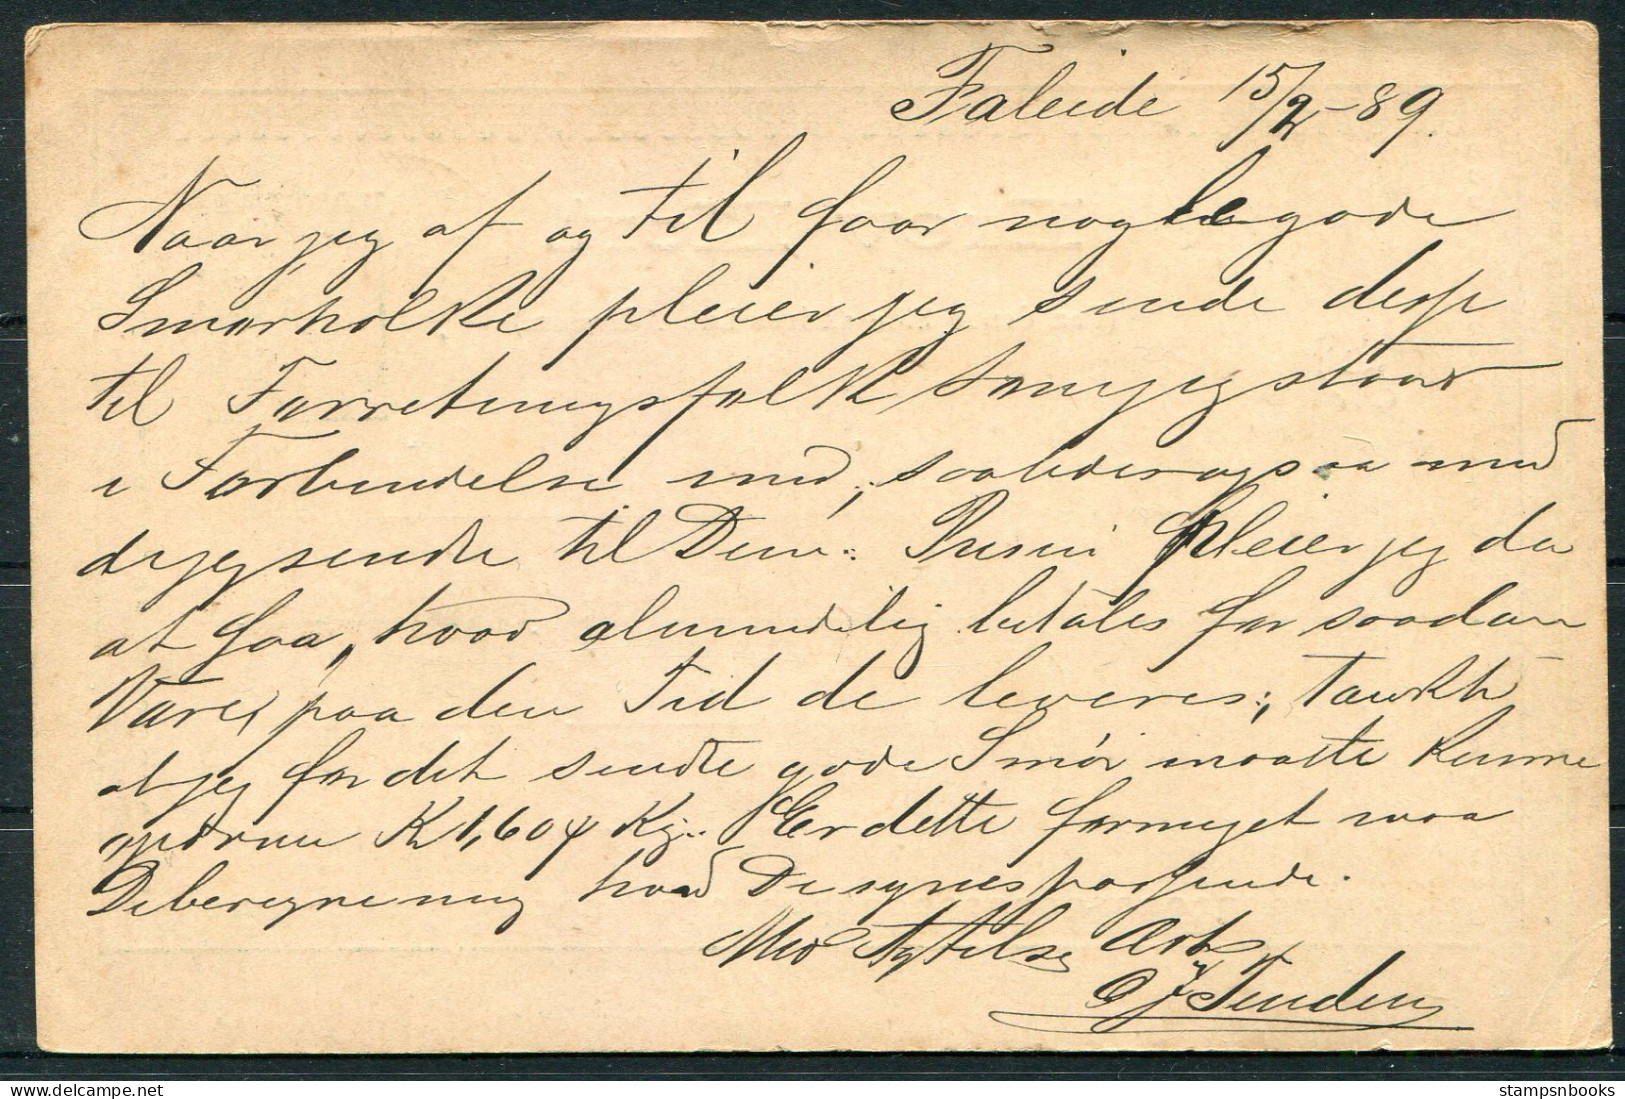 Faleide 15/2-89.
Naar jeg af og til faar nogle gode
Smørholke pleier jeg sende disse
til Forretningsfolk som jeg staar
i Forbindelse med, saaledes ogsaa med
de jeg sendte til Dem: Prisen pleier jeg da
at faa, hvad almindelig betales for saadan
Vare paa den Tid de leveres;
at jeg for det sendte gode Smør maatte kunne
K 1,60 Kg. Er dette formeget maa
De beregne mig hvad De synes passende.
Med Agtelse Ærb